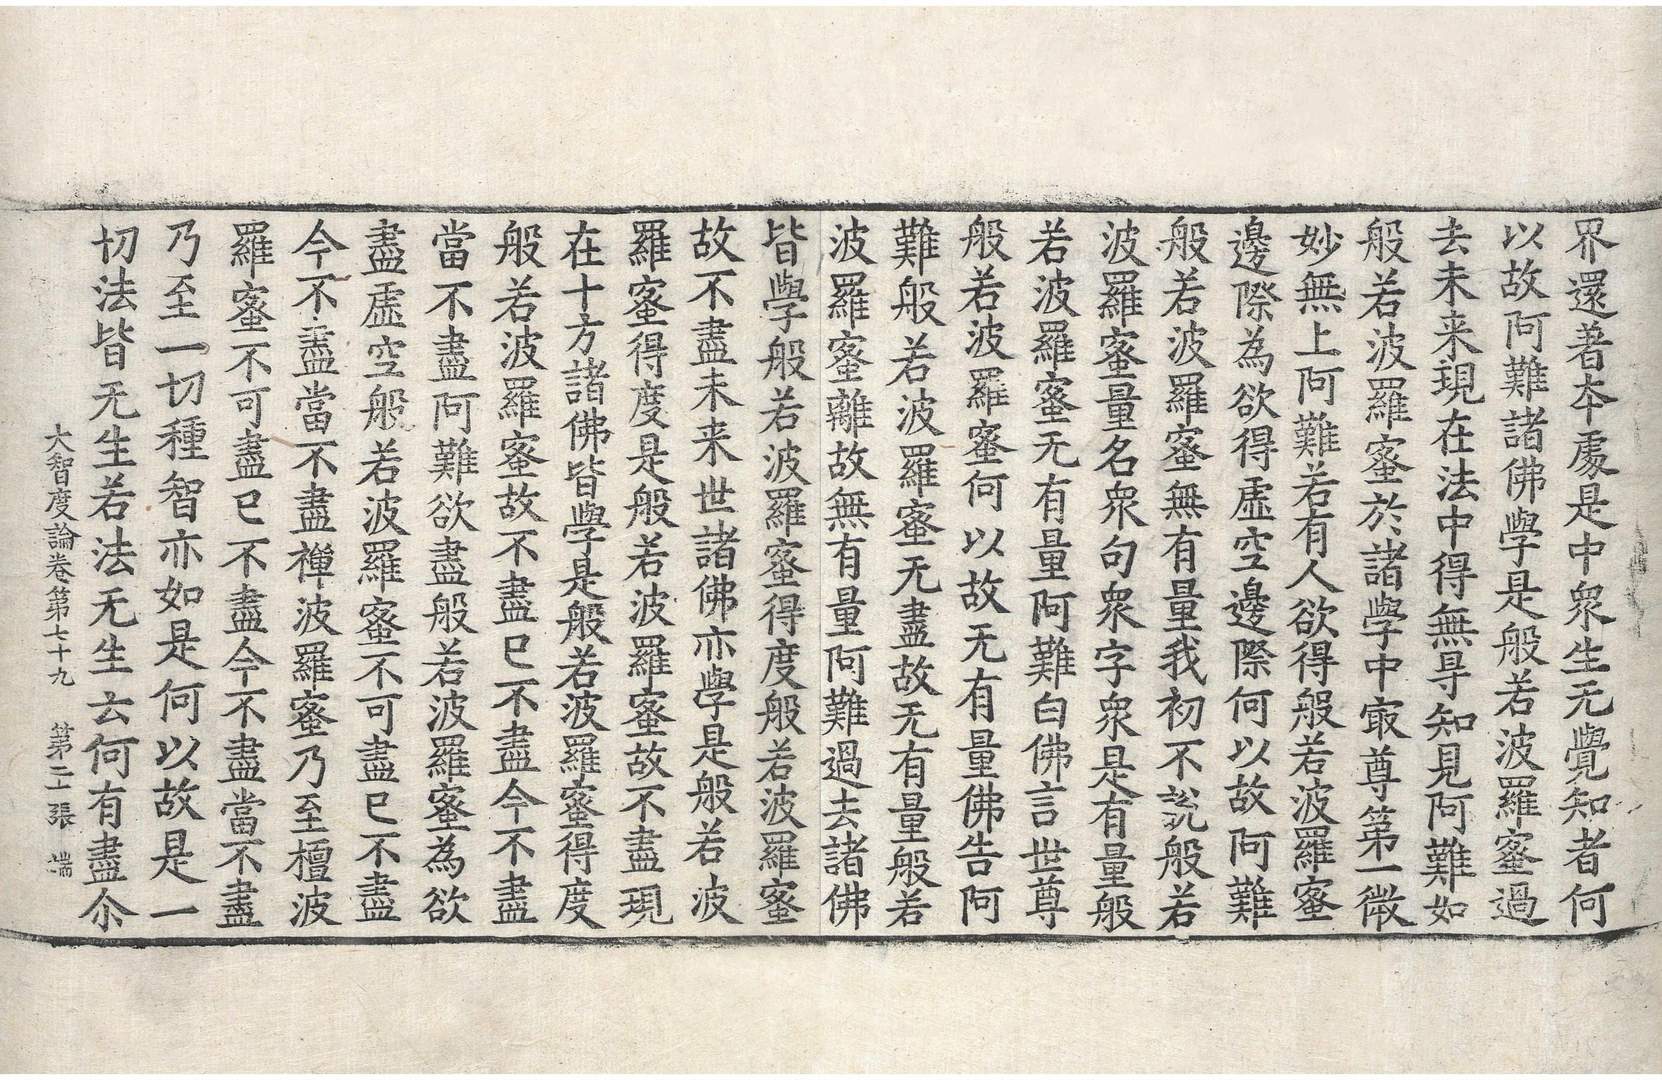 界還著本處是中衆生无覺知者何
以故阿難諸佛學是般若波羅蜜過
去未来現在法中得無㝵知見阿難如
般若波羅蜜於諸學中㝡尊第一微
妙無上阿難若有人欲得般若波羅蜜
邊際為欲得虛空邊際何以故阿難
般若波羅蜜無有量我初不説般若
波羅蜜量名衆句衆字衆是有量般
若波羅蜜无有量阿難白佛言世尊
般若波羅蜜何以故无有量佛告阿
難般若波羅蜜无盡故无有量般若
波羅蜜離故無有量阿難過去諸佛
皆學般若波羅蜜得度般若波羅蜜
故不盡未来世諸佛亦學是般若波
羅蜜得度是般若波羅蜜故不盡現
在十方諸佛皆學是般若波羅蜜得度
般若波羅蜜故不盡已不盡今不盡
當不盡阿難欲盡般若波羅蜜為欲
盡虛空般若波羅蜜不可盡已不盡
今不盡當不盡禪波羅蜜乃至檀波
羅蜜不可盡已不盡今不盡當不盡
乃至一切種智亦如是何以故是一
切法皆无生若法无生云何有盡尒
大智度論卷第七十九 第二十張 端